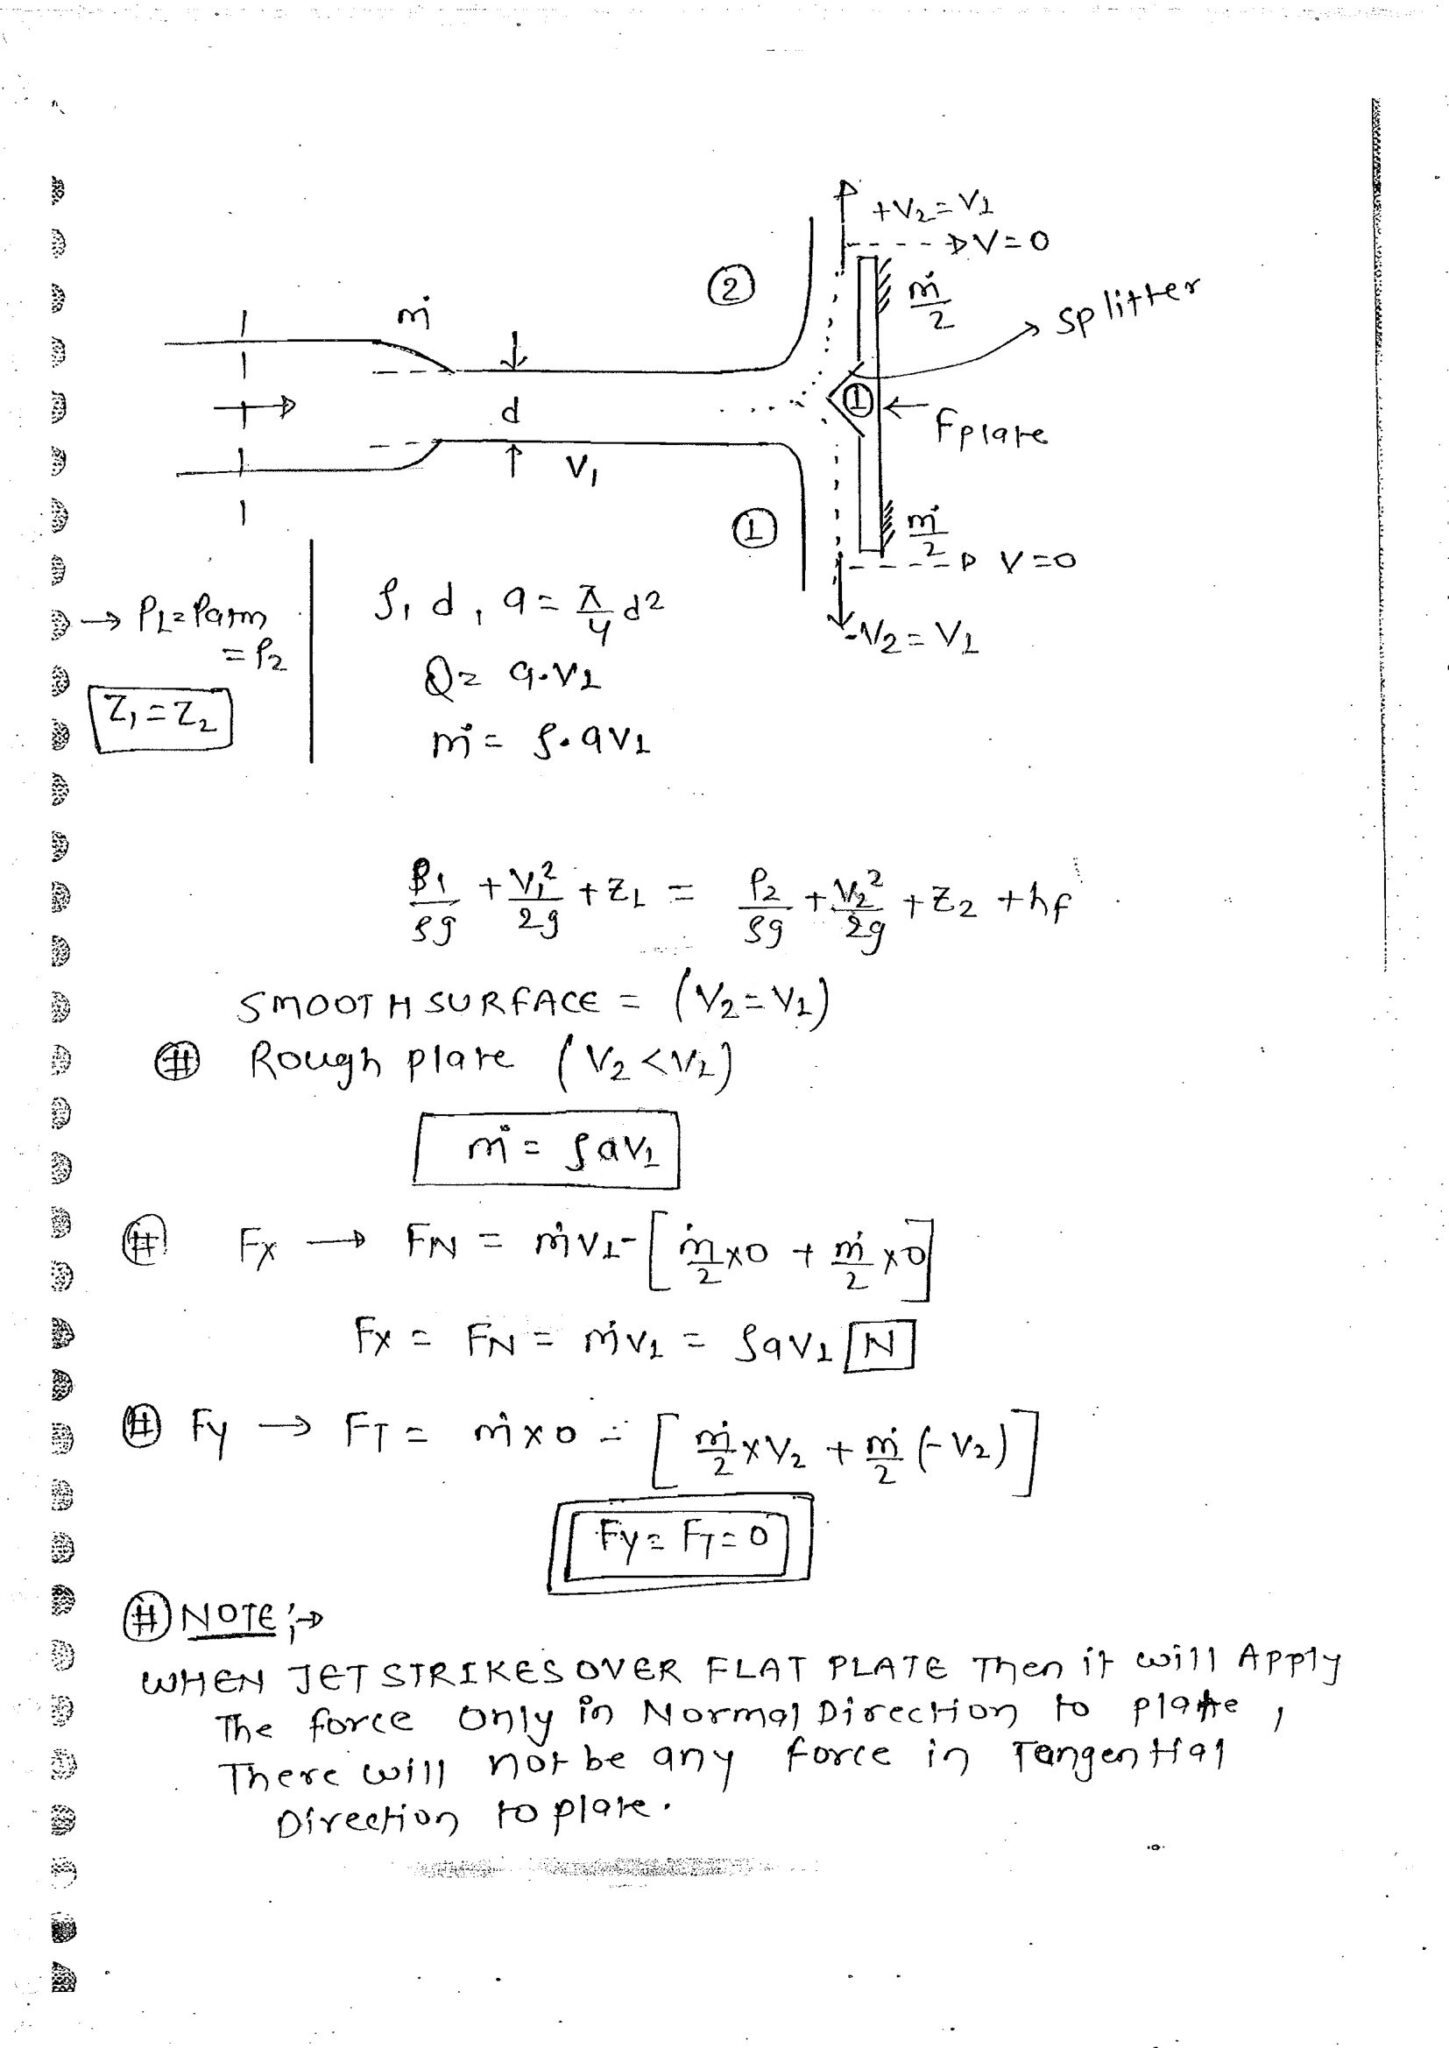 +V₂ = V₁
V=0
②
ṁ/2
splitter
ṁ
d
①
Fplate
V₁
①
ṁ/2
V=0
-V₂ = V₁
→ P₁ = Patm
= P₂
Z₁ = Z₂
ρ, d, a = π/4 d²
Q = a.V₁
ṁ = ρ.aV₁
P₁/ρg + V₁²/2g + Z₁ = P₂/ρg + V₂²/2g + Z₂ + hf
SMOOTH SURFACE = (V₂ = V₁)
# Rough plate (V₂ < V₁)
ṁ = ρaV₁
# Fx → FN = ṁV₁ - [ṁ/2 x0 + ṁ/2 x0]
Fx = FN = ṁV₁ = ρaV₁ N
# Fy → FT = ṁx0 - [ṁ/2 x V₂ + ṁ/2 (-V₂)]
Fy = FT = 0
# NOTE ;→
WHEN JET STRIKES OVER FLAT PLATE Then it will Apply
The force only in Normal Direction to plate ,
There will not be any force in Tangential
Direction to plate.